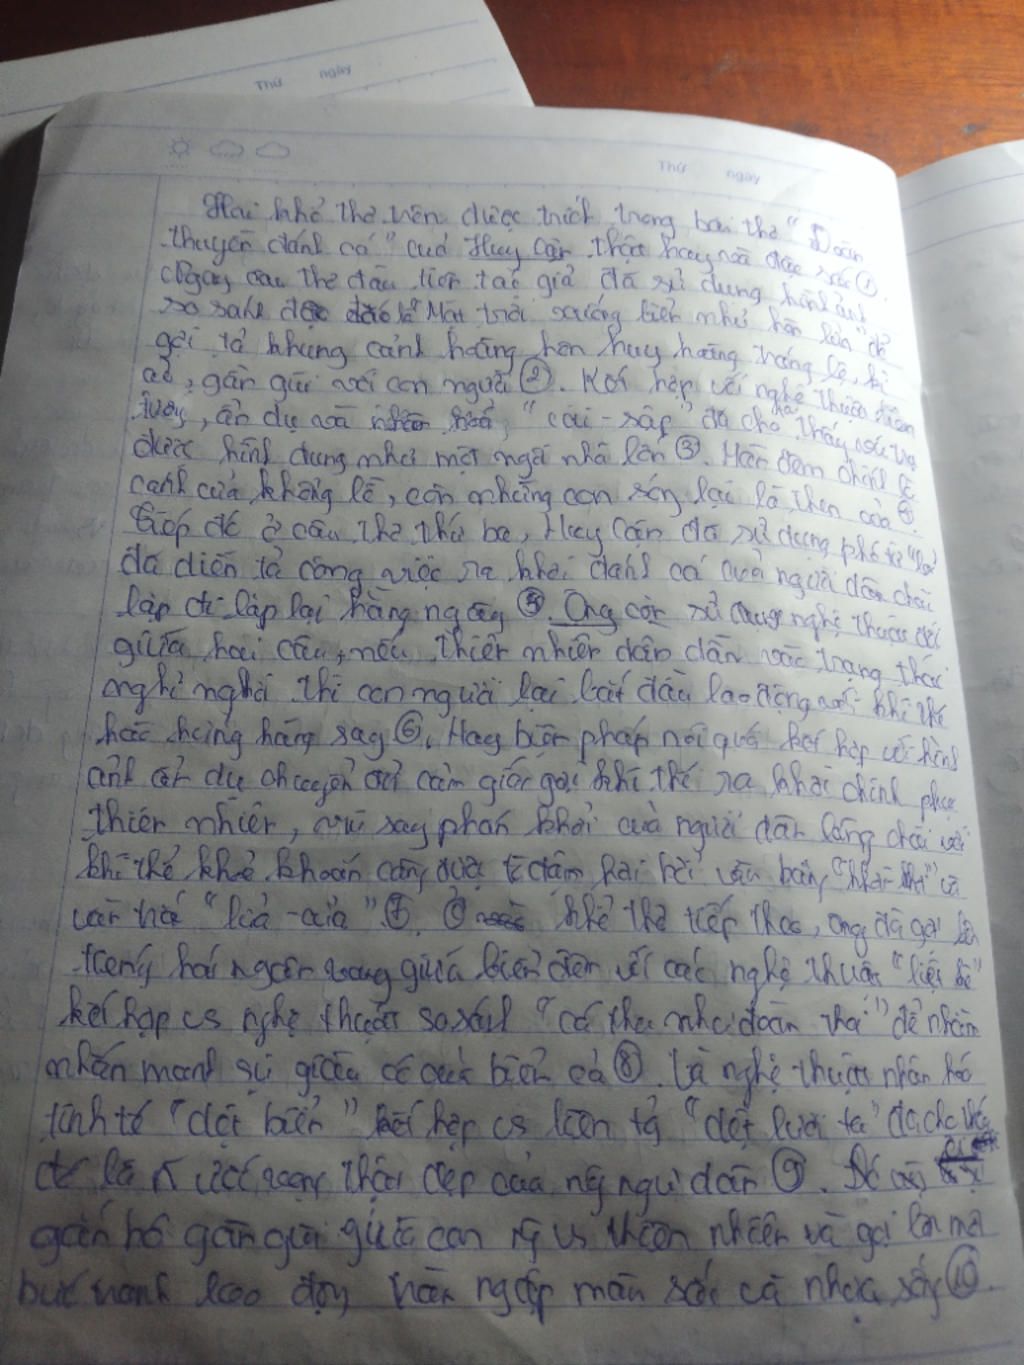 Thứ ngày
Thứ ngày
Hai khổ thơ trên được trích trong bài thơ "Đoàn
thuyền đánh cá" của Huy Cận thật hay và đặc sắc ①.
Ngay câu thơ đầu tiên tác giả đã sử dụng hình ảnh
so sánh đó là "Mặt trời xuống biển như hòn lửa" để
gợi tả khung cảnh hoàng hôn huy hoàng tráng lệ, kì
ảo, gần gũi với con người ②. Kết hợp với nghệ thuật liên
tưởng, ẩn dụ và nhân hoá, "cài - sập" đã cho thấy vũ trụ
được hình dung như một ngôi nhà lớn ③. Màn đêm chính là
cánh cửa khổng lồ, còn những con sóng lại là then cửa ④.
Tiếp đó ở câu thơ thứ ba, Huy Cận đã sử dụng phó từ "lại"
đã diễn tả công việc ra khơi đánh cá của người dân chài
lặp đi lặp lại hằng ngày ⑤. Ông còn sử dụng nghệ thuật đối
giữa hai câu, nếu thiên nhiên dần dần vào trạng thái
nghỉ ngơi thì con người lại bắt đầu lao động với khí thế
hào hứng hăng say ⑥. Hay biện pháp nói quá kết hợp với hình
ảnh ẩn dụ chuyển đổi cảm giác gợi khí thế ra khơi chinh phục
thiên nhiên, vui say phấn khởi của người dân làng chài với
khí thế khoẻ khoắn càng được tô đậm hơn bởi vần bằng "khơi - khơi" và
vần trắc "lửa - cửa" ⑦. Ở khổ thơ tiếp theo, ông đã gợi lên
tiếng hát ngân vang giữa biển đêm với các nghệ thuật "liệt kê"
kết hợp vs nghệ thuật so sánh "cá thu như đoàn thoi" để nhằm
nhấn mạnh sự giàu có của biển cả ⑧. Là nghệ thuật nhân hoá
tinh tế "dệt biển" kết hợp vs liên tg "dệt lưới ta" đã cho thấy
đó là 1 ước vọng thật đẹp của ng ngư dân ⑨. Đó
gắn bó gần gũi giữa con ng vs thiên nhiên và gợi lên một
bức tranh lao động tràn ngập màu sắc và nhựa sống ⑩.